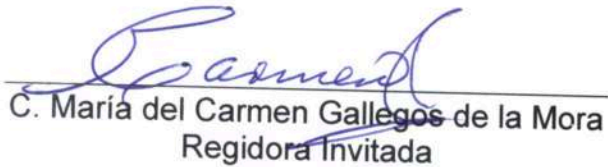 Carmen
C. María del Carmen Gallegos de la Mora
Regidora Invitada